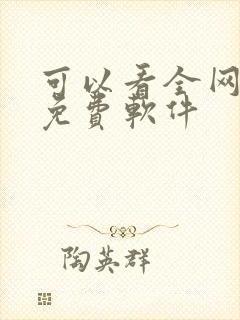 可以看全网
免費軟件
陶英群